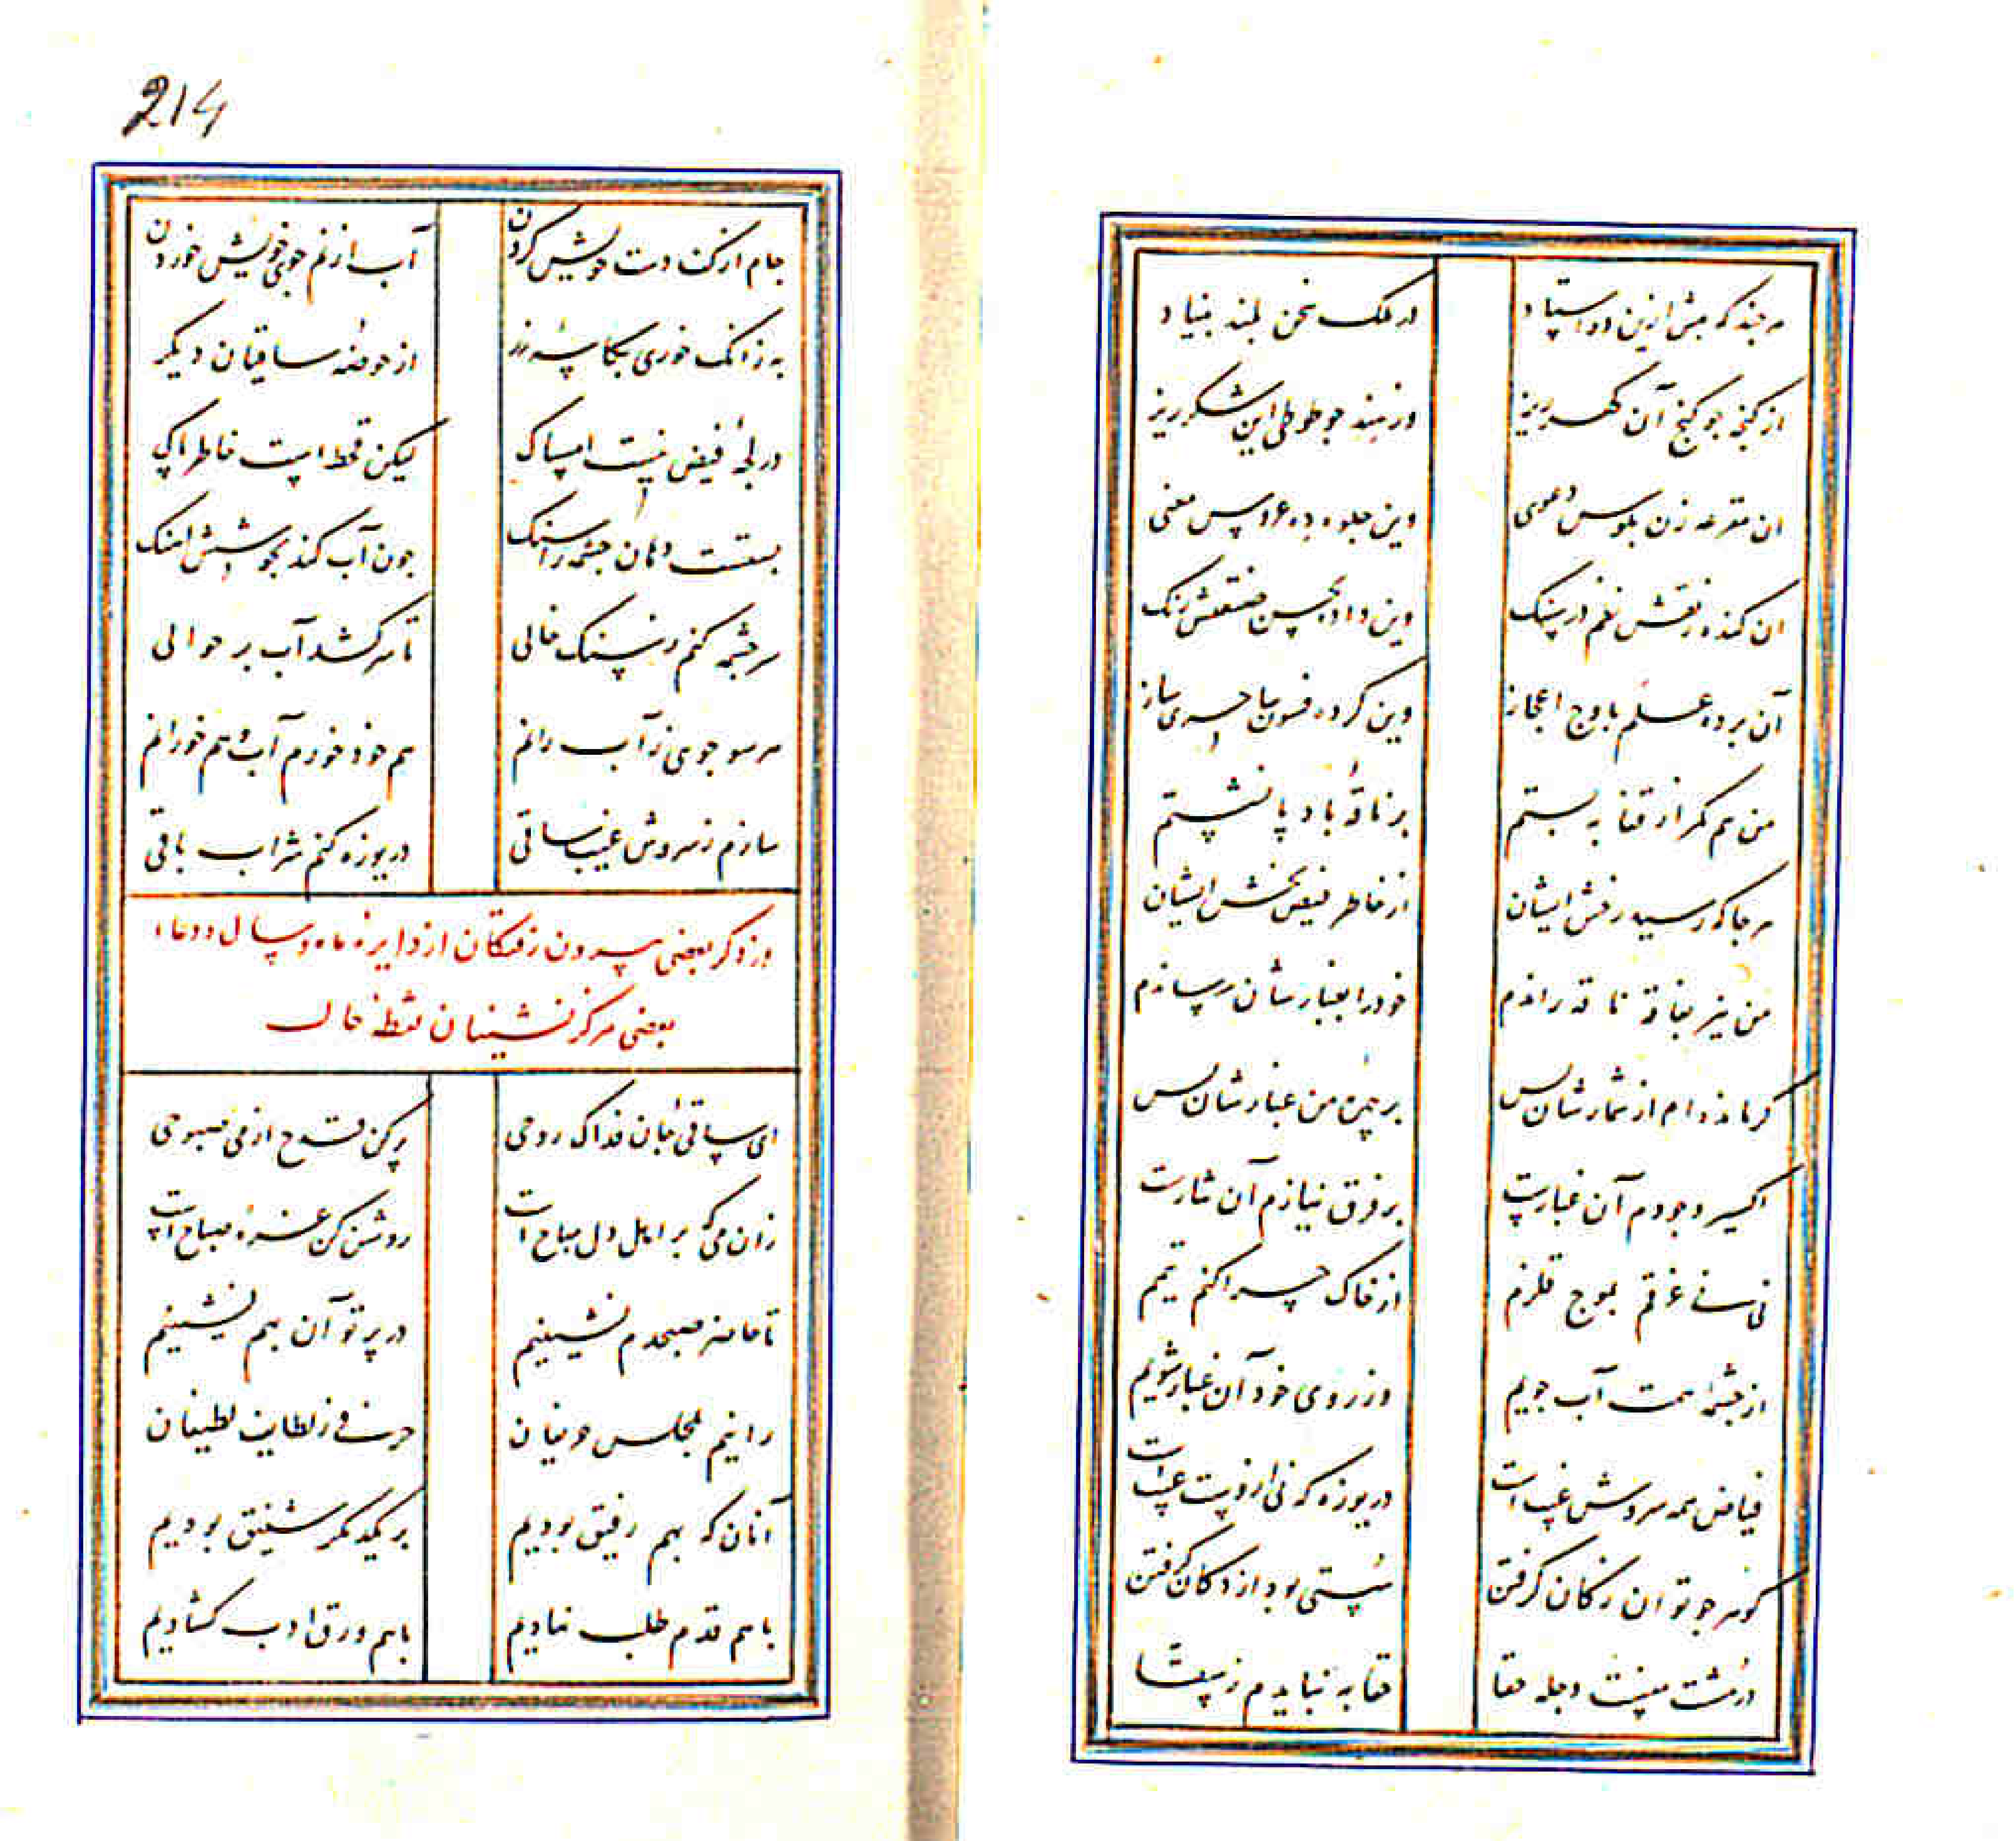 هر چند که پیش ازین دو استاد
در ملک سخن بلند بنیاد
از گنجه چو گنج آن گهرریز
وز هند چو طوطی این شکرریز
آن مقرعه زن بکوس دعوی
وین جلوه ده عروس معنی
آن کنده ز نقش نظم در سنگ
وین داده بحسن صنعتش رنگ
آن برده علم باوج اعجاز
وین کرده فسون ساحری ساز
من هم کمر از قفا ببستم
بر ناقه باد پا نشستم
هر جا که رسید رخش ایشان
از خاطر فیض بخش ایشان
من نیز بفاقه ناقه راندم
خود را بغبارشان رساندم
گر مانده‌ام از شمارشان پس
بر چهره من غبارشان بس
اکسیر وجودم آن غبارست
بر فرق نیازم آن نثارست
نی نی غرقم بموج قلزم
از خاک چرا کنم تیمم
از چشمه همت آب جویم
وز روی خود آن غبار شویم
فیاض همه سروش غیب است
دریوزه گری ازوست عیب است
گوهر چو توان ز کان گرفتن
سستی بود از دکان گرفتن
در مشت منست دجله حقا
حقا به نبایدم ز سقا
214
جام از کف دست خویش کردن
آب از نم جوی خویش خوردن
به زانک خوری بکاسه زر
از حوضه ساقیان دیگر
در لجه فیض نیست امساک
لیکن قحط است خاطر پاک
بستست دهان چشمه را سنگ
چون آب کند بجوشش آهنگ
سرچشمه کنم ز سنگ خالی
تا سر کشد آب بر حوالی
هر سو جوی ز آب رانم
هم خود خورم آب و هم خورانم
سازم ز سروش غیب ساقی
دریوزه کنم شراب باقی
در ذکر بعضی بیرون رفتگان از دایره ماه و سال و دعاء
بعضی مرکز نشینان نقطه حال
ای ساقی جان فداک روحی
پر کن قدح از می صبوحی
زان می که بر اهل دل مباح است
روشن کن غره صباح است
تا جامه صبحدم نشینیم
در پرتو آن بهم نشینیم
رانیم بمجلس حریفان
حرفی ز لطایف لطیفان
آنان که بهم رفیق بودیم
بر یکدیگر شفیق بودیم
با هم قدم طلب نهادیم
با هم ورق ادب گشادیم